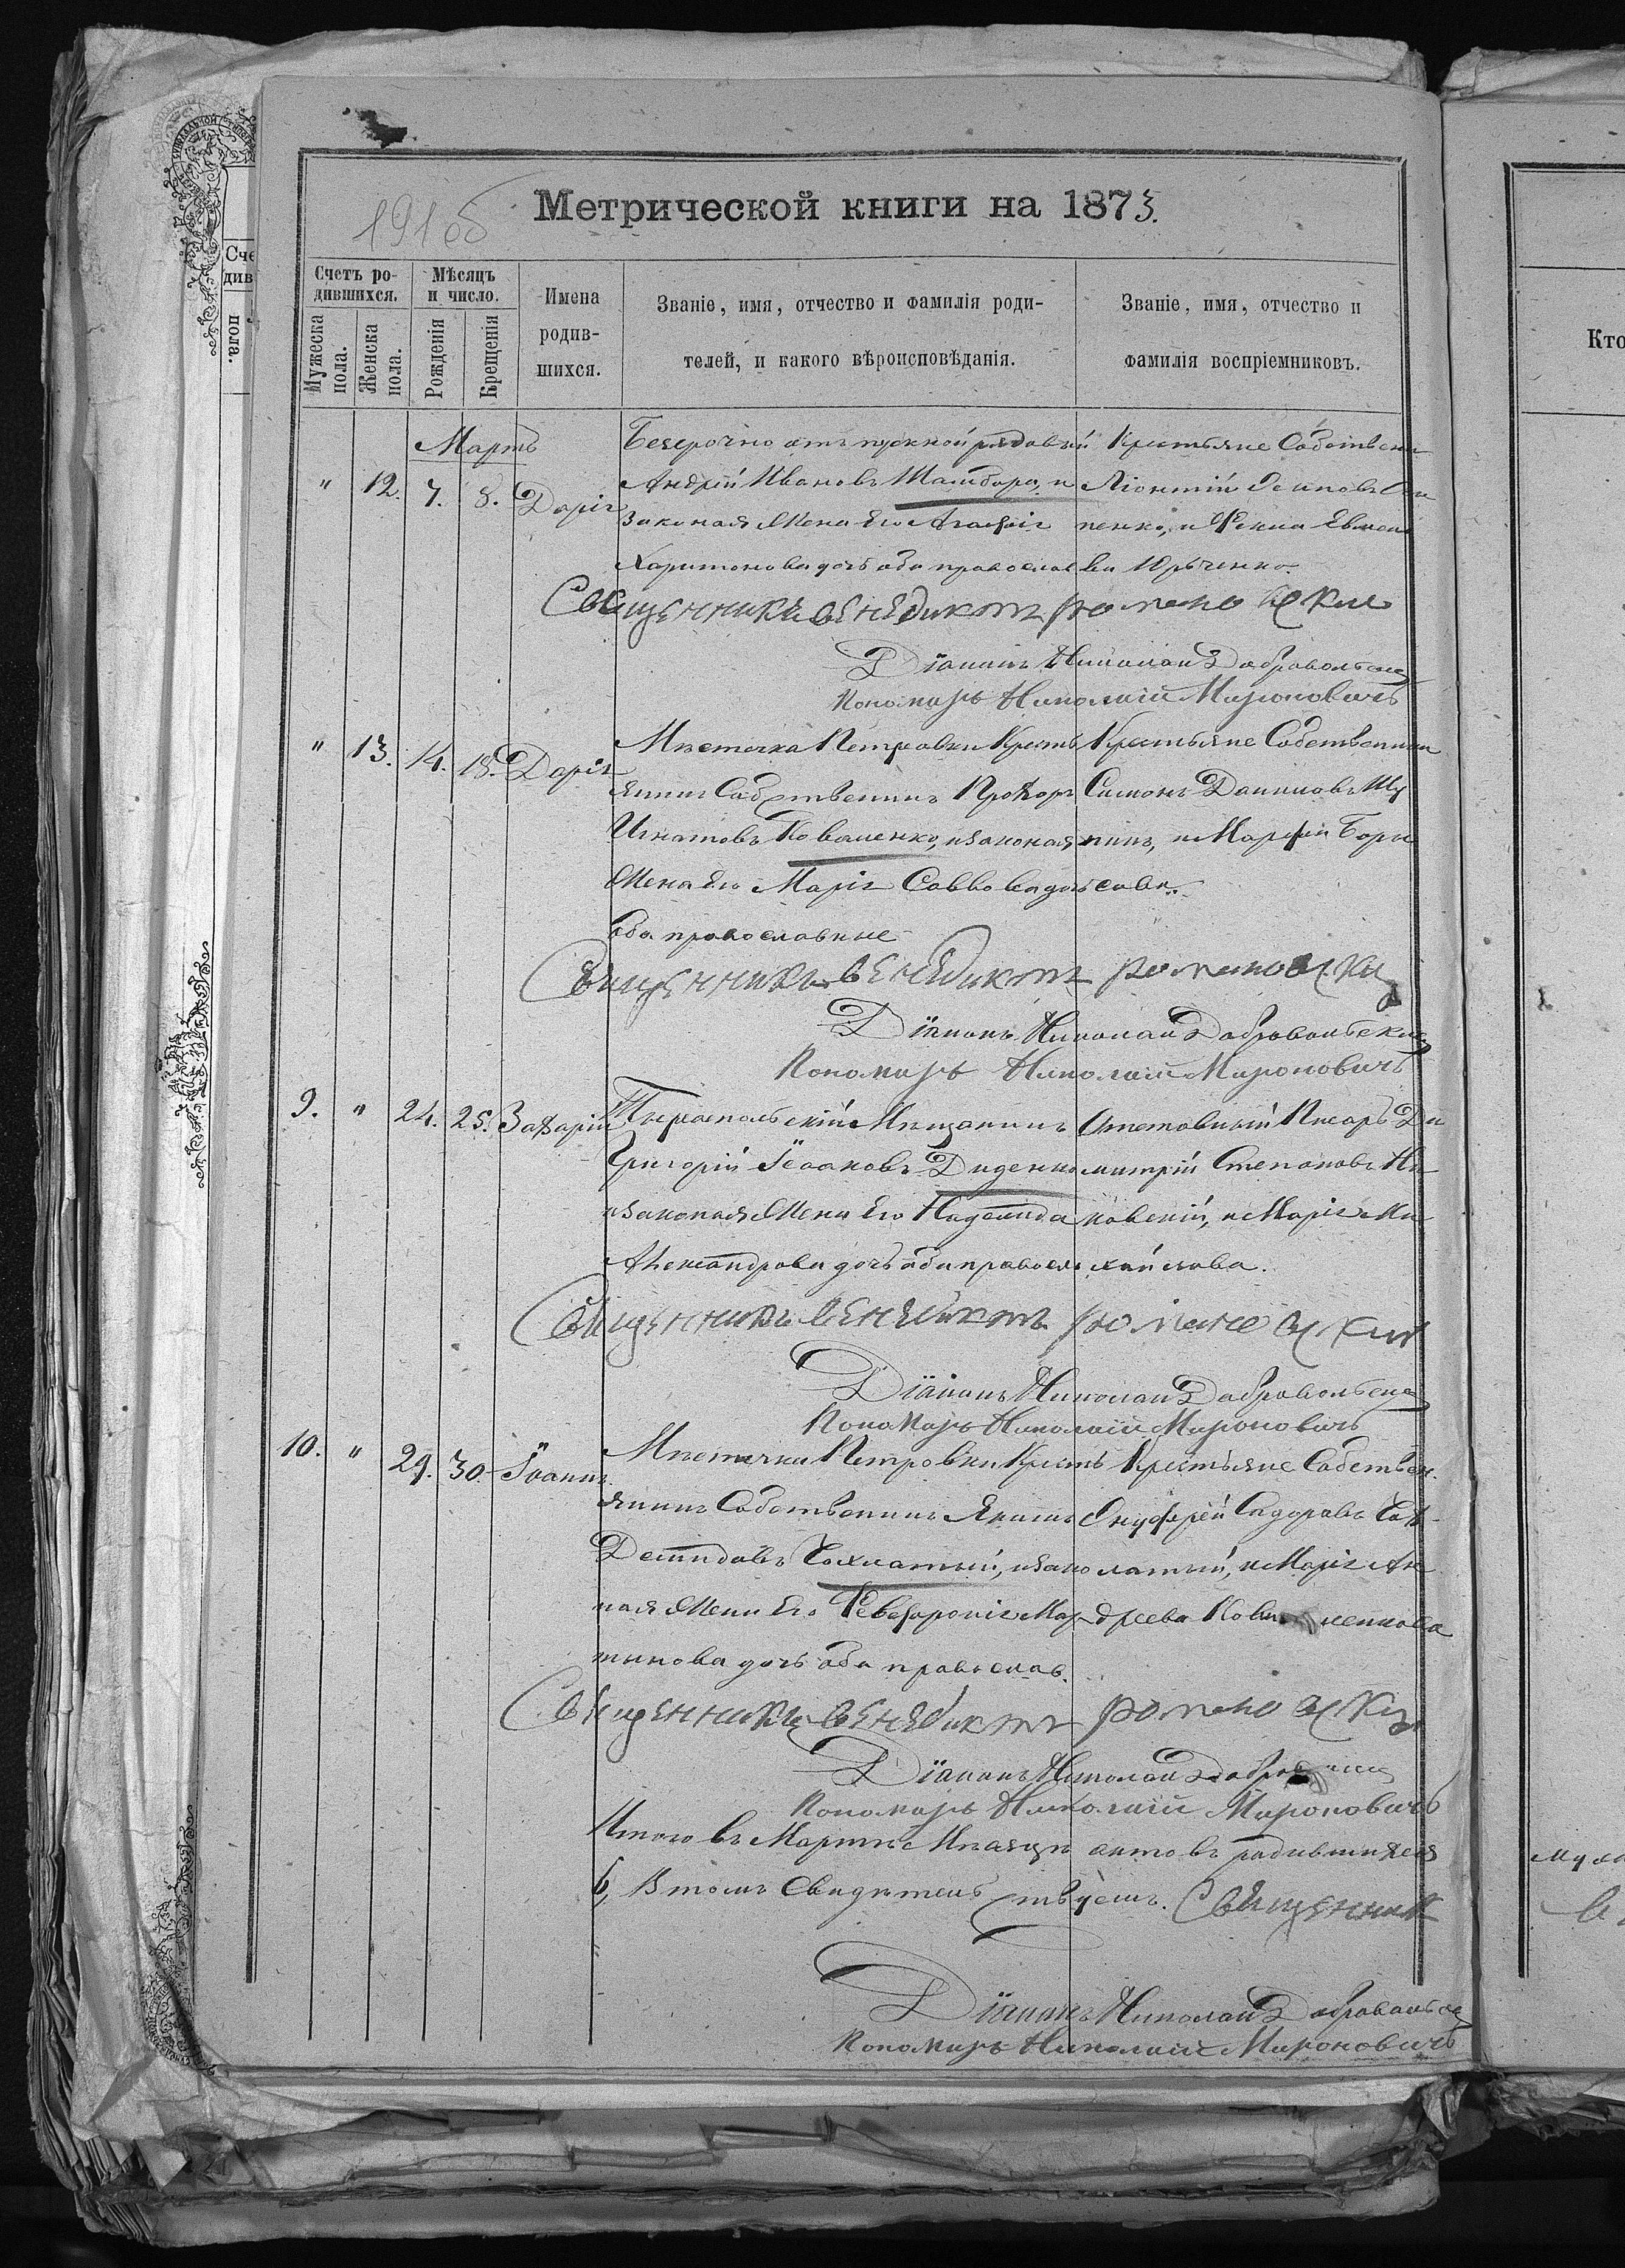 191об
Метрической книги на 1873.
Счетъ ро-
дившихся.
Мѣсяцъ
и число.
Мужеска
пола.
Женска
пола.
Рожденія
Крещенія
Имена
родив-
шихся.
Званіе, имя, отчество и фамилія роди-
телей, и какого вѣроисповѣданія.
Званіе, имя, отчество и
фамилія воспріемниковъ.
Мартъ
" 12. 7. 8. Дарія
Безсрочно отпускной рядовый
Андрей Ивановъ и
законая жена Его Агафія
Харитонова дочь оба православ
Крестьяне Собствени
Ліонтій Осиповъ
пенко, и Евмень
ва Юрченко
Священникъ Венедиктъ Романовскій
Діаконъ Николай Добровольскій
Пономарь Николай Мироновичъ
" 13. 14. 18. Дарія
Мѣстечка Петровки Кресть
янинъ Собственикъ Прохоръ
Игнатовъ Коваленко, и законая
жена Его Марія Саввова дочь
оба православные
Крестьяне Собственики
Симонъ Даниловъ Шу
пикъ, и Марфа Бори
сова.
Священникъ Венедиктъ Романовскій
Діаконъ Николай Добровольскій
Пономарь Николай Мироновичъ
9. " 24. 25. Захарій
Тираспольскій Мещанинъ
Григорій Исааковъ Диденко
и законая жена Его Надежда
Александрова дочь оба правосла
Отставный Писарь Ди
митрій Степановъ
новскій, и Марія Ми
хайлова.
Священникъ Венедиктъ Романовскій
Діаконъ Николай Добровольскій
Пономарь Николай Мироновичъ
10. " 29. 30. Іоаннъ
Мѣстечка Петровки Кресть
янинъ Собственикъ Якимъ
Демидовъ Чохлатый, и зако
ная жена Его Февфронія Мар
тинова дочь оба православ.
Крестьяне Собствен.
Онуфрей Сидоровъ Чох
латый, и Марія Ан
дреева Коваленкова
Священникъ Венедиктъ Романовскій
Діаконъ Николай
Пономарь Николай Мироновичъ
Итого въ Мартѣ Мѣсяцѣ актовъ родившихся
6, В томъ Свидѣтельствуемъ. Священникъ
Діаконъ Николай Добровольскій
Пономарь Николай Мироновичъ
Сче
див
пола.
Кто